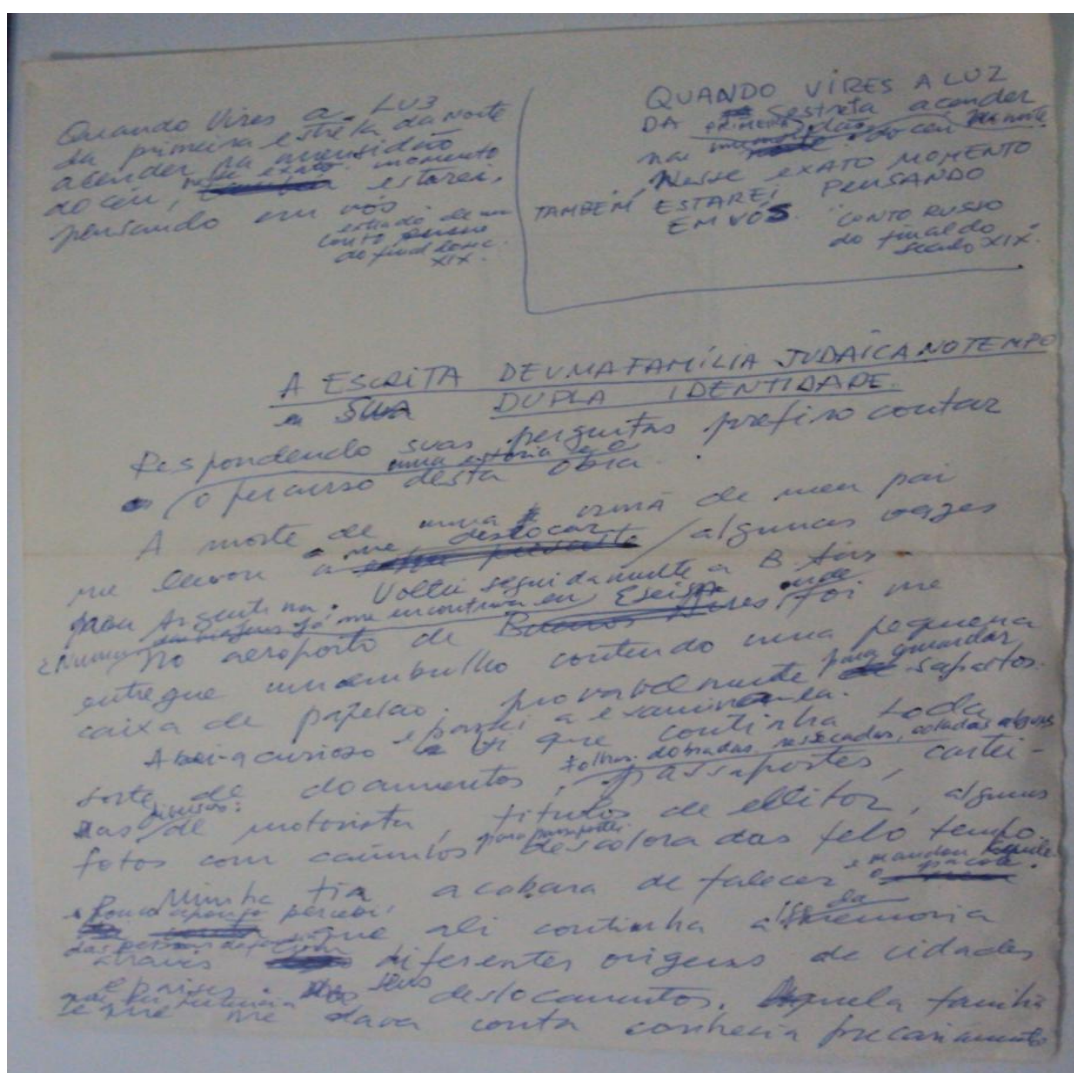 Quando vires a luz
da primeira estrela da noite
acender na imensidão
do céu, nesse exato momento
estarei,
pensando em vós
extraído de um
conto russo
do final do sec.
XIX.
QUANDO VIRES A LUZ
DA primeira estrela acender
na imensidão do céu da noite
Nesse EXATO MOMENTO
TAMBÉM ESTAREI PENSANDO
EM VÓS.
CONTO RUSSO
do final do
século XIX.
A ESCRITA DE UMA FAMÍLIA JUDAÍCA NO TEMPO
SUA DUPLA IDENTIDADE.
Respondendo suas perguntas prefiro contar
uma estória e é
o percurso desta obra.
A morte de uma irmã de meu pai
me levou a me deslocar algumas vezes
para Argentina. Voltei seguidamente a B Aires
já me encontrava em Eseisa onde
No aeroporto de Buenos Aires foi me
entregue um embrulho contendo uma pequena
caixa de papelão. provavelmente para guardar sapatos.
Abri-a curioso e passei a examiná-la.
vi que continha toda
sorte de documentos, folhas dobradas, ressecadas, coladas algumas
passaportes, cartei-
ras de motorista, títulos de elitor, algumas
diversos:
fotos com carimbos para passaporte descoloradas pelo tempo.
Minha tia acabara de falecer e mandou
pacote.
percebi que ali continha a memoria
através diferentes origens de cidades
e paises. seus deslocamentos. Aquela familia
que me dava conta conhecia precariamente